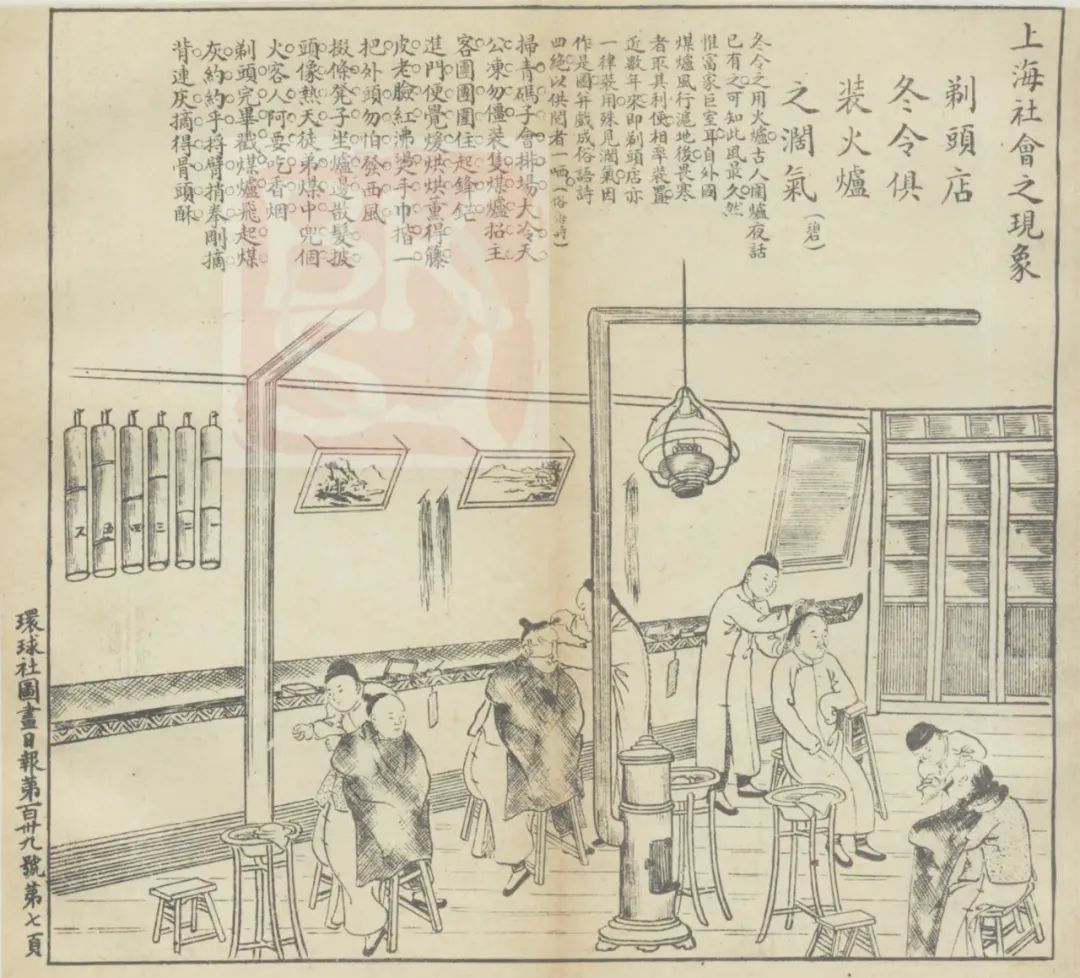 上海社會之現象
剃頭店
冬令俱
裝火爐
之濶氣
(碧)
冬令之用火爐古人圍爐夜話
已有之可知此風最久然
惟富家巨室耳自外國
煤爐風行滬地後畏寒
者取其利便相率裝置
近數年來即剃頭店亦
一律裝用殊見濶氣因
作是圖幷戲成俗語詩
四絕以供閱者一哂
掃青碼子會排場大冷天
公凍勿僵裝隻煤爐招主
客團團圍住起鋒鋩
進門便覺煖烘烘薰得籐
皮老臉紅沸燙手巾揩一
把外頭勿怕發西風
掇條凳子坐爐邊散髮披
頭像熱天徒弟煤中兜個
火客人阿要吃香烟
剃頭完畢戳煤爐飛起煤
灰約約乎捋臂捎拳剛摘
背連灰摘得骨頭酥
一
二
三
四
五
環球社圖畫日報第百卅九號第七頁